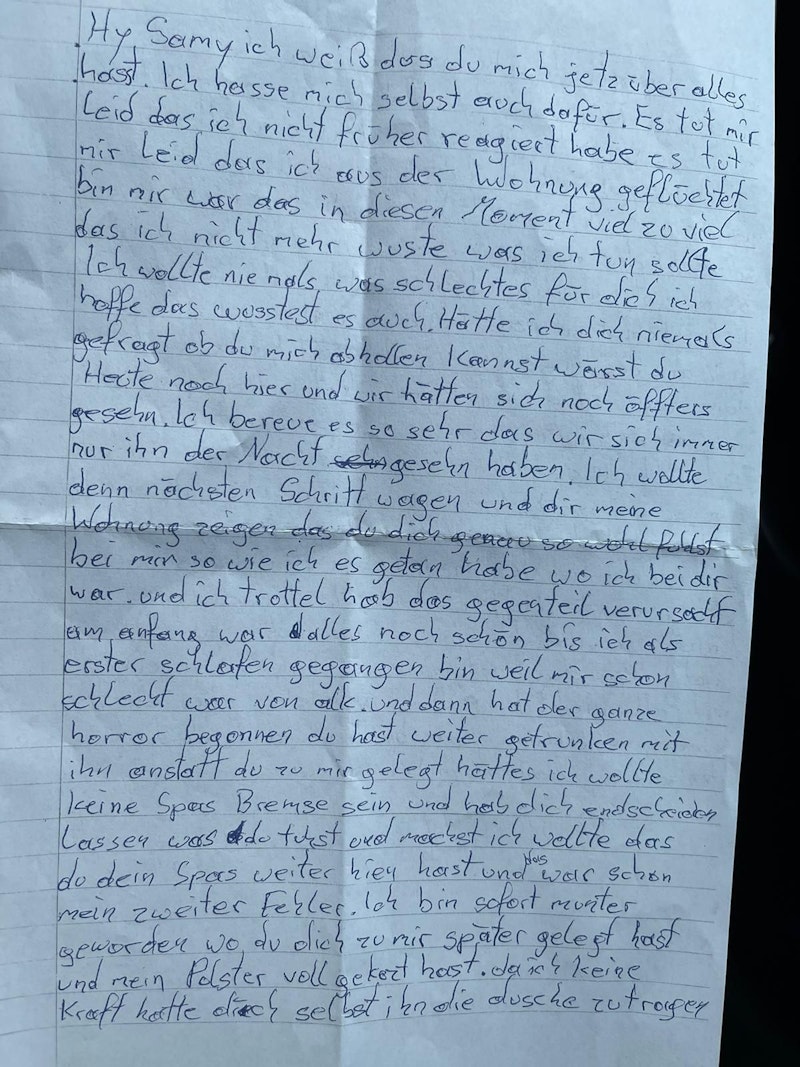 Hy Samy ich weiß das du mich jetz über alles
hasst. Ich hasse mich selbst auch dafür. Es tut mir
Leid das ich nicht früher reagiert habe es tut
mir Leid das ich aus der Wohnung geflüchtet
bin mir war das in diesen Moment viel zu viel
das ich nicht mehr wuste was ich tun sollte
Ich wollte niemals was schlechtes für dich ich
hoffe das wusstest es auch. Hätte ich dich niemals
gefragt ob du mich abhollen kannst wärsst du
Heute noch hier und wir hätten sich noch öffters
gesehn. Ich bereue es so sehr das wir sich immer
nur ihn der Nacht gesehn haben. Ich wollte
denn nächsten Schritt wagen und dir meine
Wohnung zeigen das du dich genau so wohl fühlst
bei mir so wie ich es getan habe wo ich bei dir
war. und ich trottel hab das gegenteil verursacht
am anfang war alles noch schön bis ich als
erster schlafen gegangen bin weil mir schon
schlecht war von alk. und dann hat der ganze
horror begonnen du hast weiter getrunken mit
ihn anstatt du zu mir gelegt hättes ich wollte
keine Spas Bremse sein und hab dich endscheiden
Lassen was du tuhst und machst ich wollte das
du dein Spas weiter hier hast und das war schon
mein zweiter Fehler. Ich bin sofort munter
geworden wo du dich zu mir später gelegt hast
und mein Polster voll gekozt hast. da ich keine
Kraft hatte dich selbst ihn die dusche zu tragen